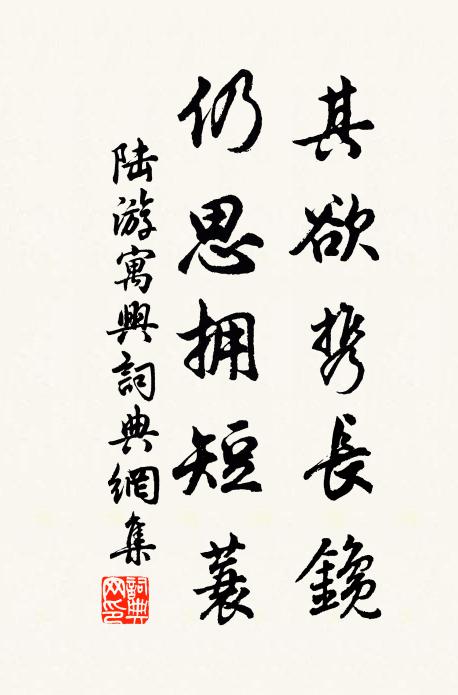 其欲携長鑱
仍思拥短蓑
陆游寓興詞典網集
詞典网印